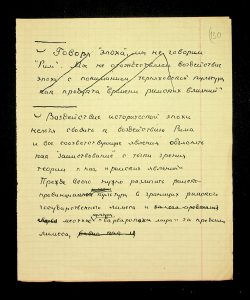 Говоря "эпоха", мы не говорим
"Рим". Мы не отождествляем воздействие
эпохи с пониманием черняховской культуры
как продукта "времени римских влияний"
Воздействие исторической эпохи
нельзя сводить к воздействию Рима
и все соответствующие явления объяснять
как заимствование с точки зрения
теории т. наз. "римских влияний"
Прежде всего нужно различать римско-
провинциальную культуру в границах римского
государственного лимеса и
местную культуру "варварского мира" за пределами
лимеса,